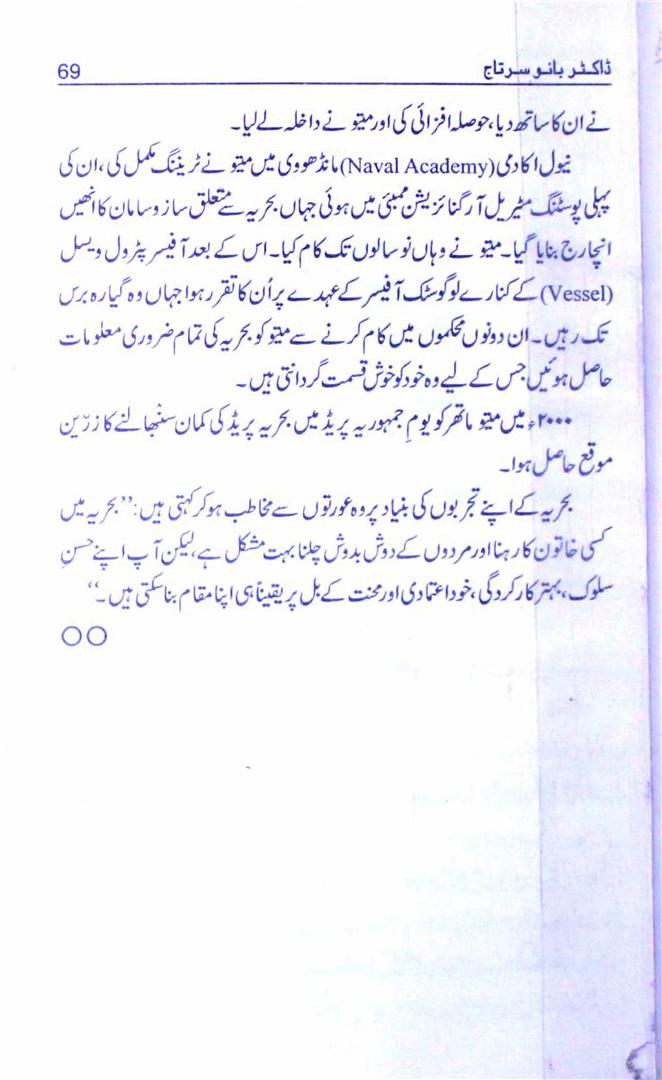 ڈاکٹر بانو سرتاج 69
نے ان کا ساتھ دیا، حوصلہ افزائی کی اور میتو نے داخلہ لے لیا۔
نیول اکادمی (Naval Academy) مانڈھووی میں میتو نے ٹریننگ مکمل کی، ان کی
پہلی پوسٹنگ مٹیریل آرگنائزیشن ممبئی میں ہوئی جہاں بحریہ سے متعلق ساز و سامان کا انھیں
انچارج بنایا گیا۔ میتو نے وہاں نو سالوں تک کام کیا۔ اس کے بعد آفیسر پٹرول ویسل
(Vessel) کے کنارے لوگوسٹک آفیسر کے عہدے پر اُن کا تقرر ہوا جہاں وہ گیارہ برس
تک رہیں۔ ان دونوں محکموں میں کام کرنے سے میتو کو بحریہ کی تمام ضروری معلومات
حاصل ہوئیں جس کے لیے وہ خود کو خوش قسمت گردانتی ہیں۔
۲۰۰۰ء میں میتو ماتھر کو یومِ جمہوریہ پریڈ میں بحریہ پریڈ کی کمان سنبھالنے کا زرّین
موقع حاصل ہوا۔
بحریہ کے اپنے تجربوں کی بنیاد پر وہ عورتوں سے مخاطب ہو کر کہتی ہیں: ”بحریہ میں
کسی خاتون کا رہنا اور مردوں کے دوش بدوش چلنا بہت مشکل ہے، لیکن آپ اپنے حسنِ
سلوک، بہتر کارکردگی، خود اعتمادی اور محنت کے بل پر یقیناً ہی اپنا مقام بنا سکتی ہیں۔“
○○